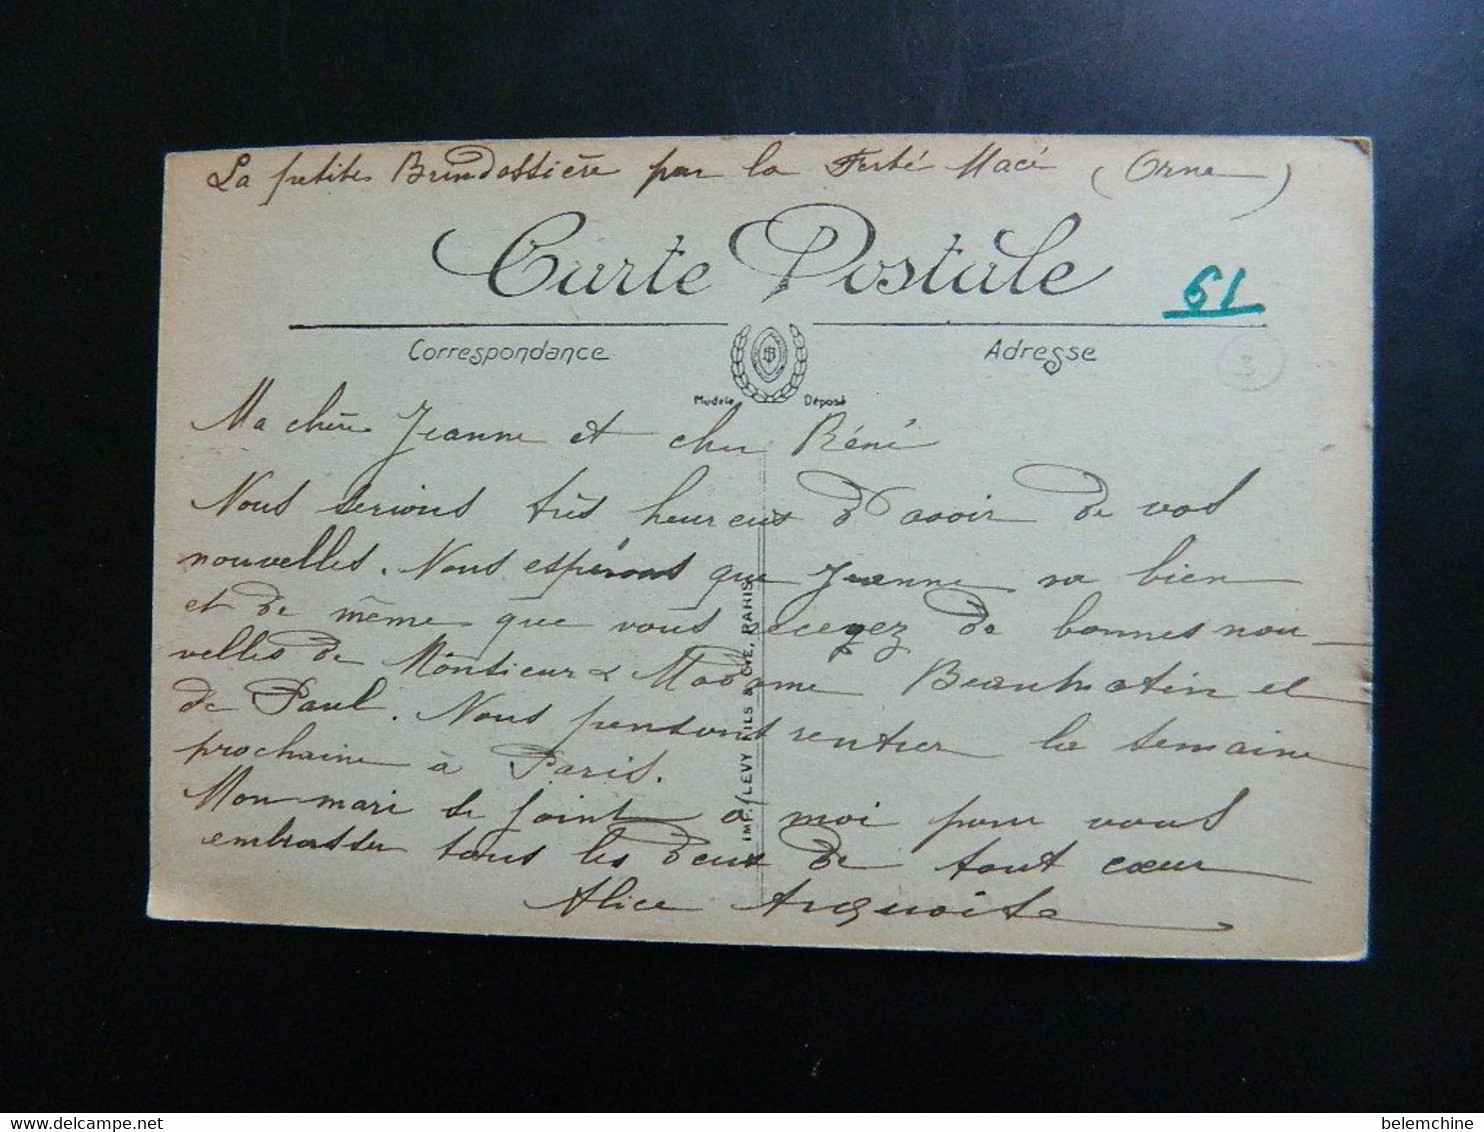 La petite Brindossière par la Ferté Macé (Orne)
Carte Postale
61
Correspondance
Adresse
Modèle Déposé
Ma chère Jeanne et cher Réné
Nous serions très heureux d'avoir de vos
nouvelles. Nous espérons que Jeanne va bien
et de même que vous recevez de bonnes nou-
velles de Monsieur & Madame et
de Paul. Nous pensons rentrer la semaine
prochaine à Paris.
Mon mari se joint à moi pour vous
embrasser tous les deux de tout cœur
Alice
IMP. LEVY FILS & CIE, PARIS
delcampe.net
belemchine